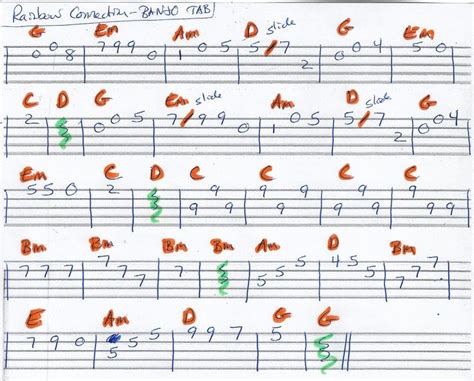 Rainbow Connection-BANJO TAB
G Em Am D slide G Em
0 0 8 7 9 9 0 1 0 5 5/7 2 0 0 4 5 0
C D G Em slide Am D slide G
2 0 0 5 7/9 9 0 0 1 0 5 5/7 2 0 0 4
Em C D C C C C
5 5 0 2 9 9 9 9 9 9 9 9 9 9 9 9
Bm Bm Bm Bm Am D Bm
7 7 7 7 7 7 7 5 5 5 4 5 5 7 7 7
E Am D G G
7 9 0 5 5 5 9 9 7 5